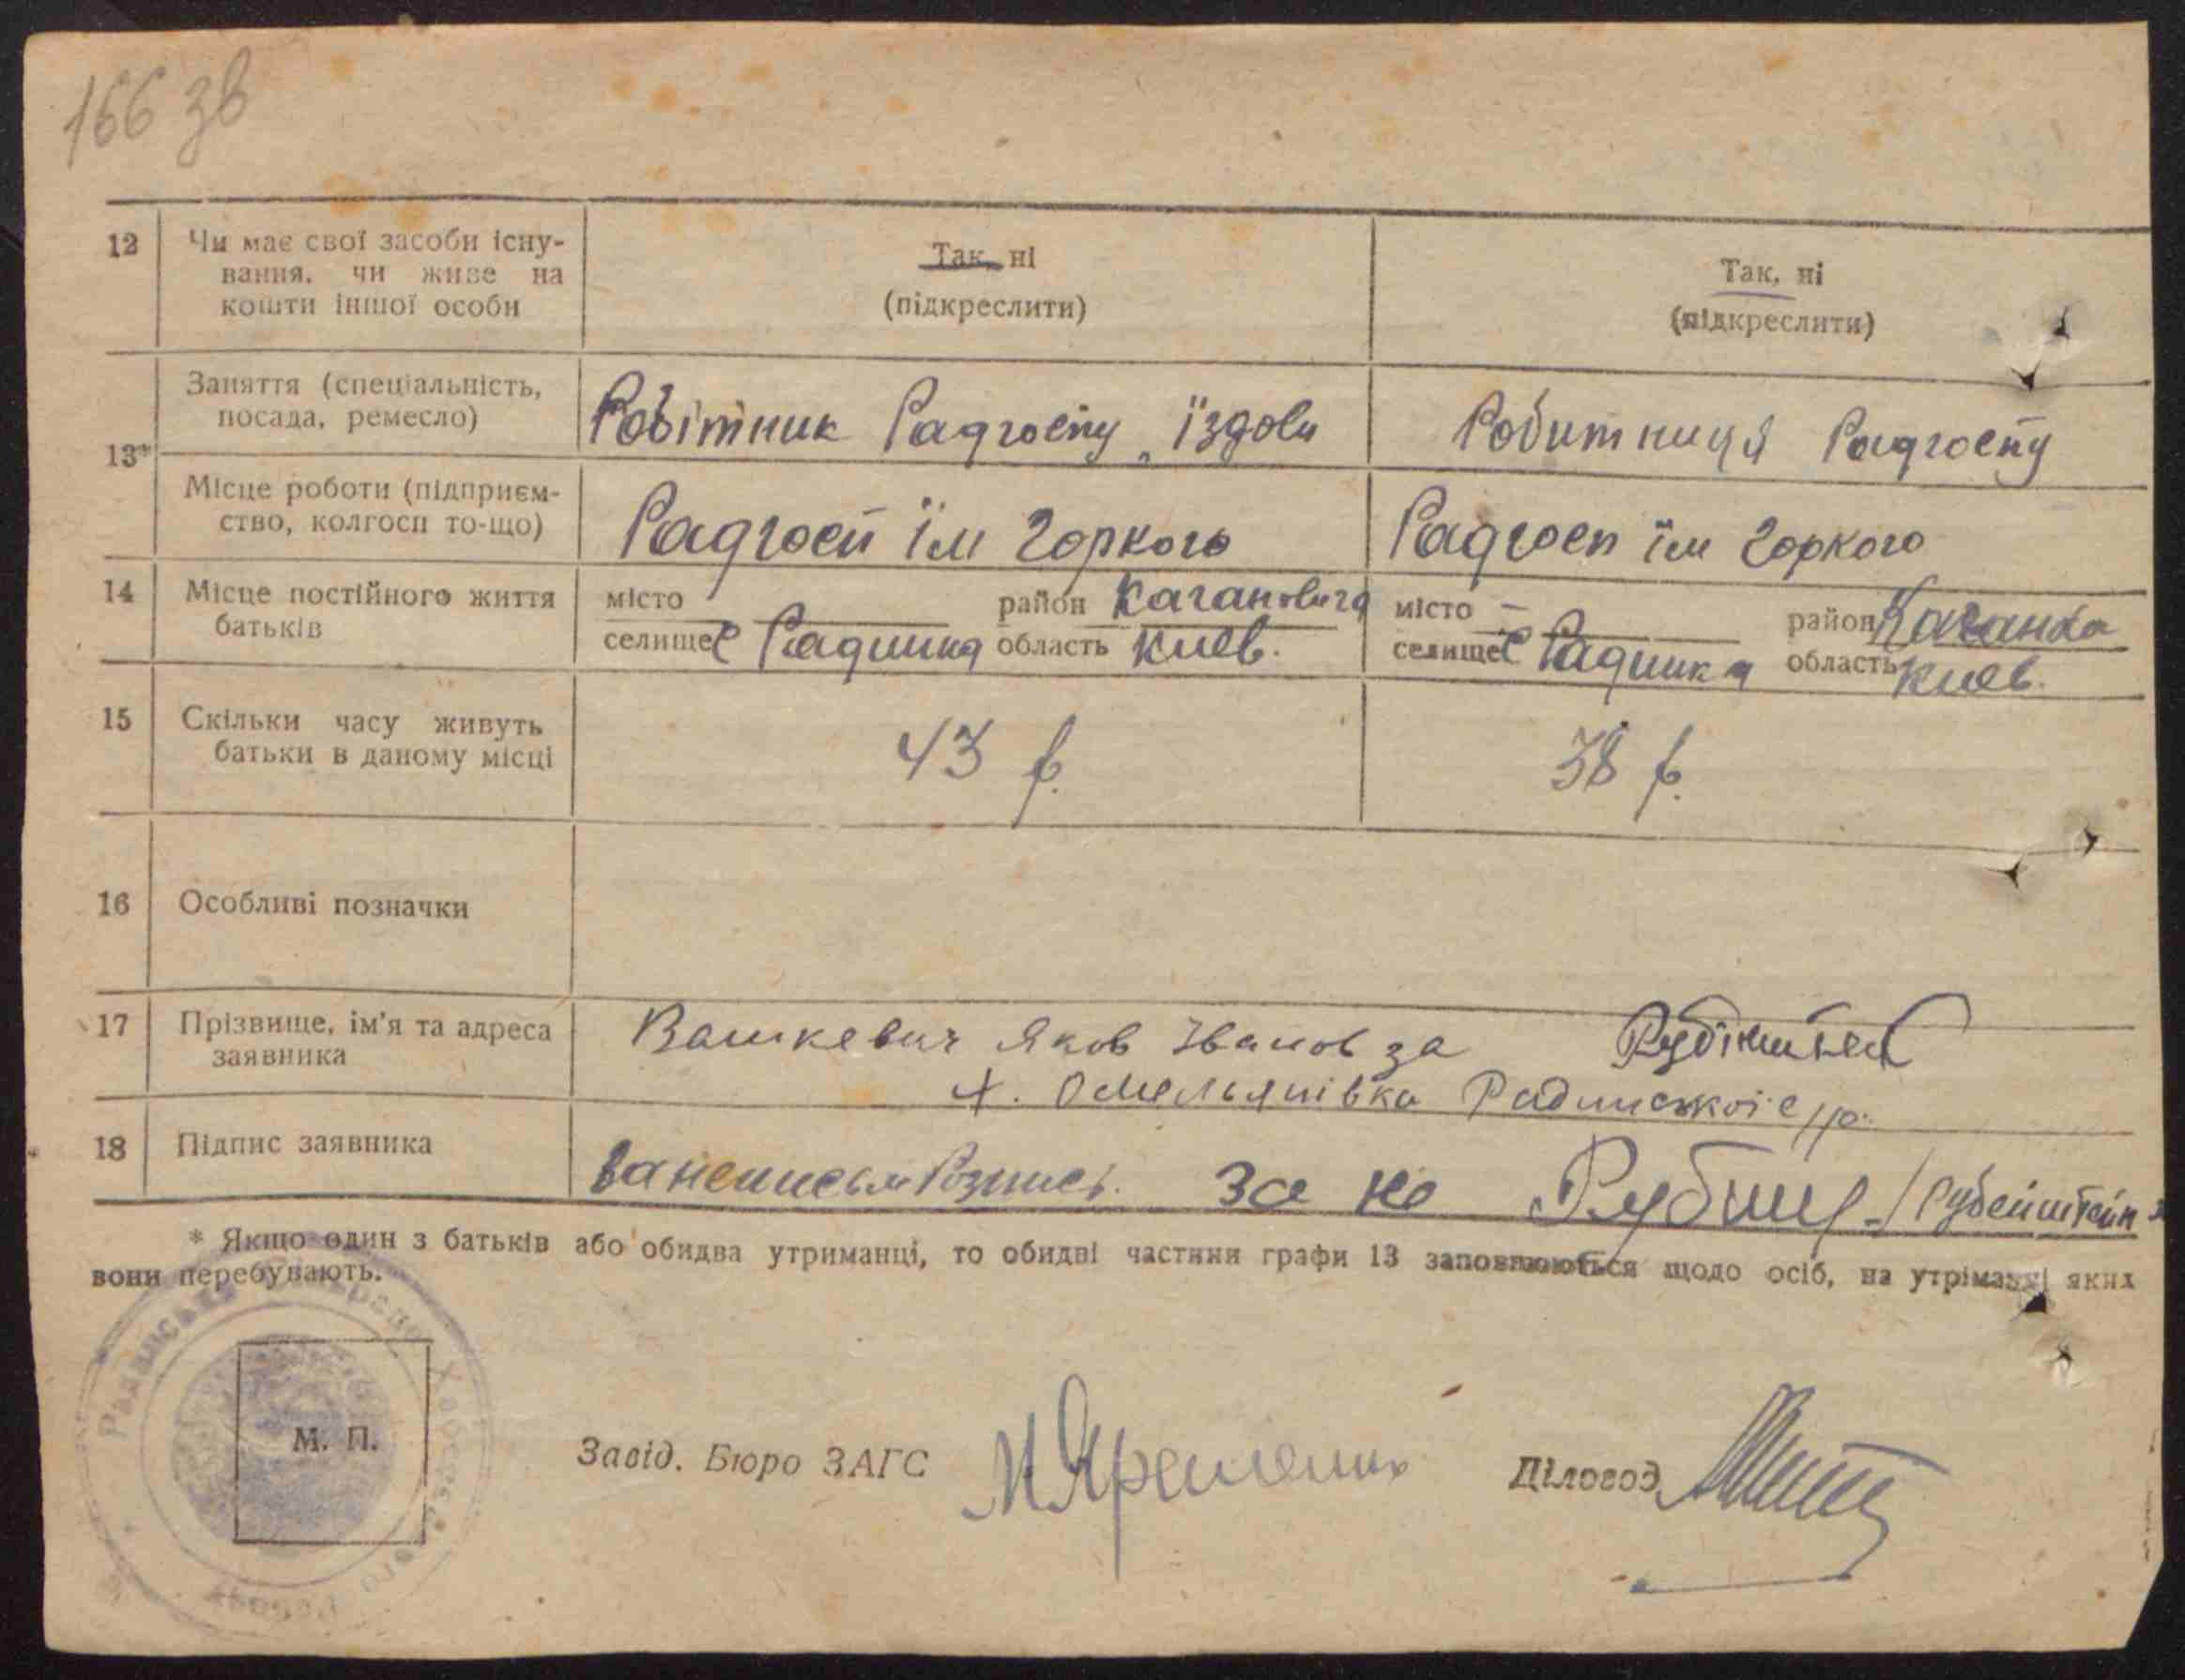 166 зв
12
Чи має свої засоби існу-
вання, чи живе на
кошти іншої особи
Так, ні
(підкреслити)
Так, ні
(підкреслити)
13*
Заняття (спеціальність,
посада, ремесло)
Робітник Радгоспу їздови
Робитниця Радгоспу
Місце роботи (підприєм-
ство, колгосп то-що)
Радгосп їм Горкого
Радгосп їм Горкого
14
Місце постійного життя
батьків
місто район Кагановича
селище с Радинка область Киев.
місто — район Каганов
селище с Радинка область Киев.
15
Скільки часу живуть
батьки в даному місці
43 р.
38 р.
16
Особливі позначки
17
Прізвище, ім'я та адреса
заявника
Вашкевич Яков Іванов за
х. Омельянівка Радинскої с/р.
18
Підпис заявника
за не /Рубейштейн
* Якщо один з батьків або обидва утриманці, то обидві частини графи 13 заповнюються щодо осіб, на утріманні яких
вони перебувають.
М. П.
Завід. Бюро ЗАГС
Діловод